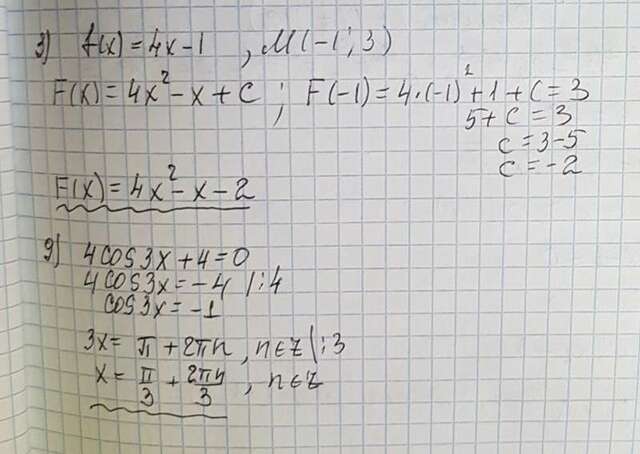 3) f(x) = 4x - 1 , M(-1; 3)
F(x) = 4x² - x + C ; F(-1) = 4·(-1)² + 1 + C = 3
5 + C = 3
C = 3 - 5
C = -2
F(x) = 4x² - x - 2
9) 4cos3x + 4 = 0
4cos3x = -4 |:4
cos3x = -1
3x = π + 2πn, n∈Z |:3
x = π/3 + 2πn/3, n∈Z